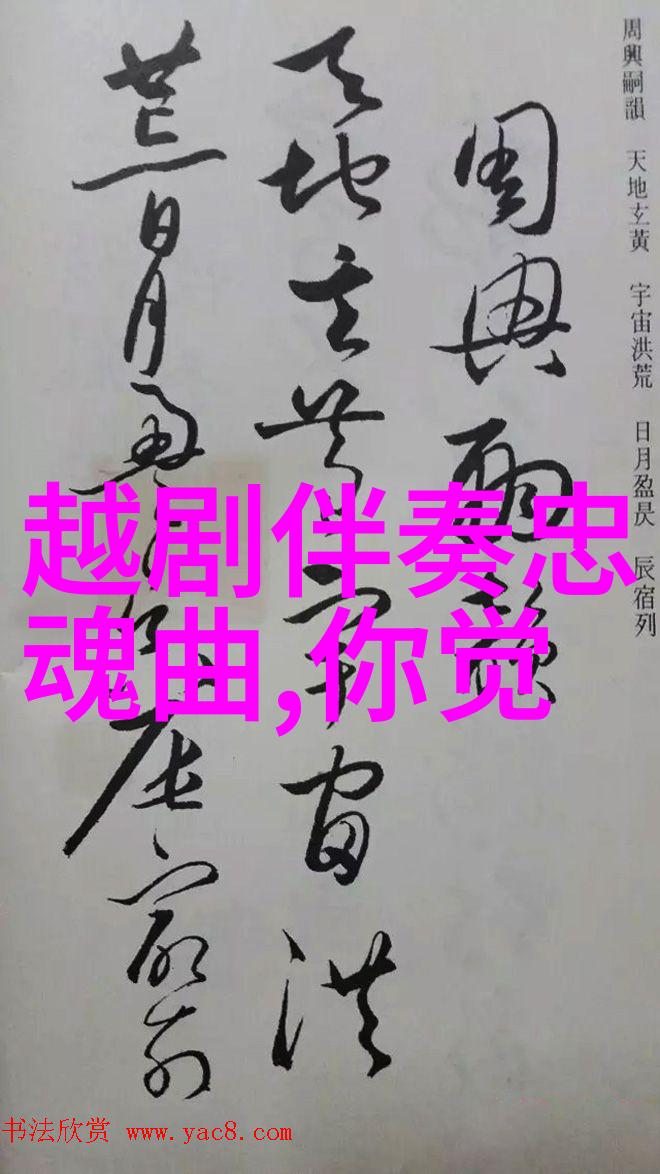 周興嗣韻
天地玄黃宇宙洪
荒日月盈昃辰宿列
周興嗣韻 天地玄黃 宇宙洪荒 日月盈昃 辰宿列
越剧伴奏忠
魂曲,你觉
书法欣赏 www.yac8.com